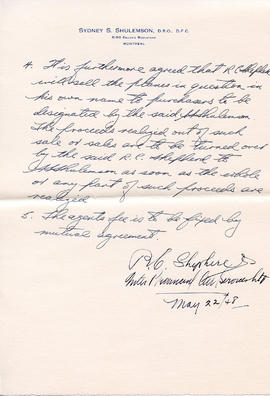 SYDNEY S. SHULEMSON, D.S.O., D.F.C.
MONTREAL
4. It is furthermore agreed that R.C. Shepherd
will sell the planes in question, in
his own name to purchasers to be
designated by the said SSShulemson
The proceeds realized out of such
sale or sales are to be turned over
by the said R.C. Shepherd to
SSShulemson as soon as the whole
or any part of such proceeds are
realized
5. The agents fee is to be fixed by
mutual agreement.
R.C. Shepherd
Inter Provincial Air Services Ltd
May 22/48